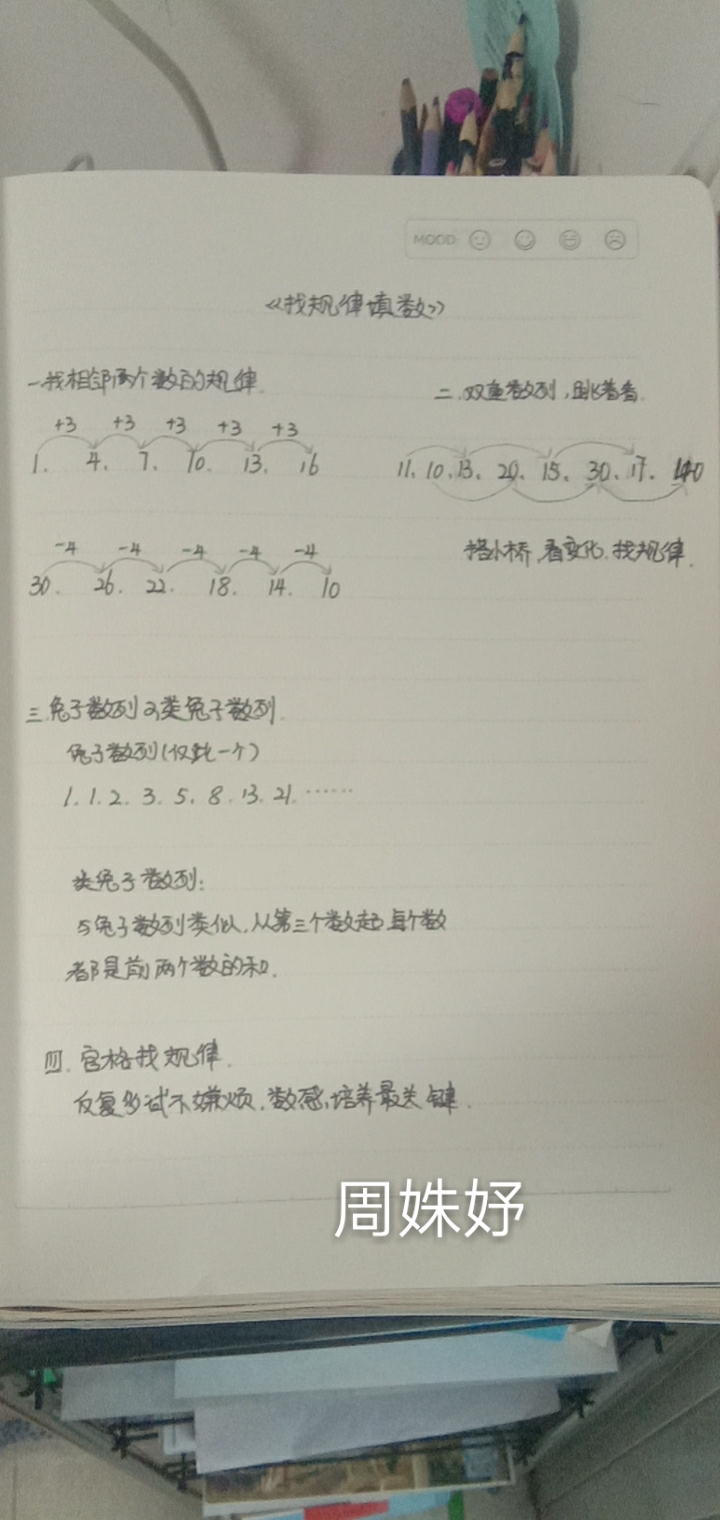 MOOD:
《找规律填数》
一.找相邻两个数的规律.
+3 +3 +3 +3 +3
1. 4. 7. 10. 13. 16
-4 -4 -4 -4 -4
30. 26. 22. 18. 14. 10
二.双重数列,跳着看.
11. 10. 13. 20. 15. 30. 17. 40
搭小桥,看变化,找规律.
三.兔子数列及类兔子数列.
兔子数列(仅此一个)
1. 1. 2. 3. 5. 8. 13. 21. ……
类兔子数列:
与兔子数列类似,从第三个数起,每个数
都是前两个数的和.
四.宫格找规律.
反复多试不嫌烦,数感培养最关键.
周姝妤